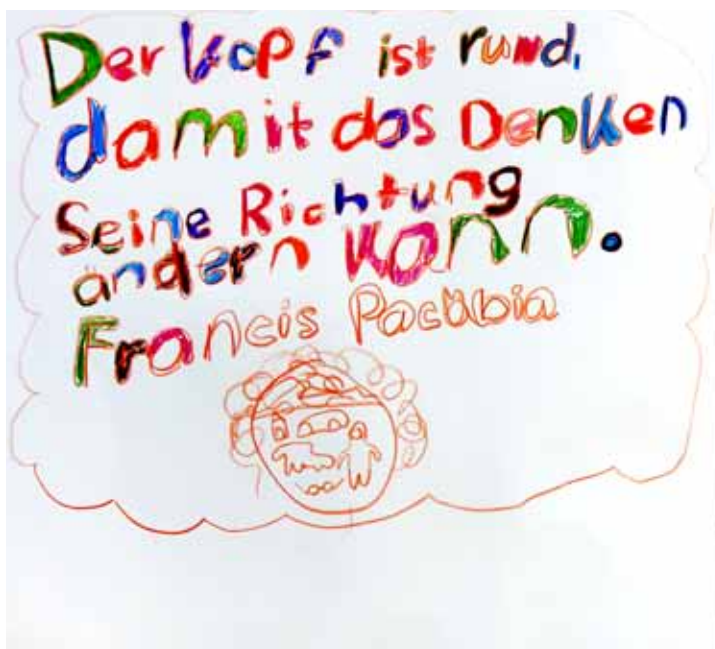 Der Kopf ist rund,
damit das Denken
Seine Richtung
ändern kann.
Francis Pacabia